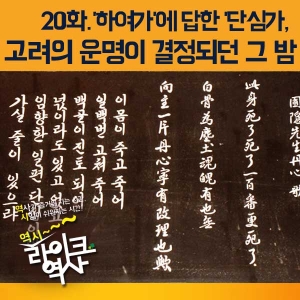 20화. '하여가'에 답한 '단심가',
고려의 운명이 결정되던 그 밤
圃隱先生丹心
此身死了死了一百番更死了
白骨為塵土魂魄有也無
向主一片丹心寧有改理也歟
이몸이죽고죽어
일백번고쳐죽어
백골이진토되어
넋이라도있고
임향한일편단
가실줄이있으랴
역시~~~
라이크
역사